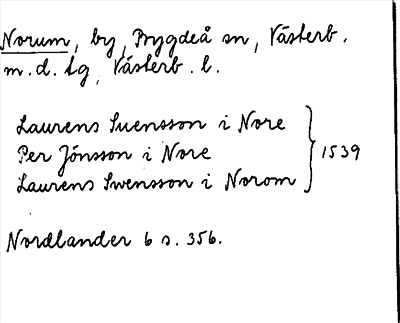 Norum, by, Bygdeå sn, Västerb.
m.d. tg, Västerb. l.
Laurens Suensson i Nore
Per Jönsson i Nore
Laurens Swensson i Norom
1539
Nordlander 6 s. 356.